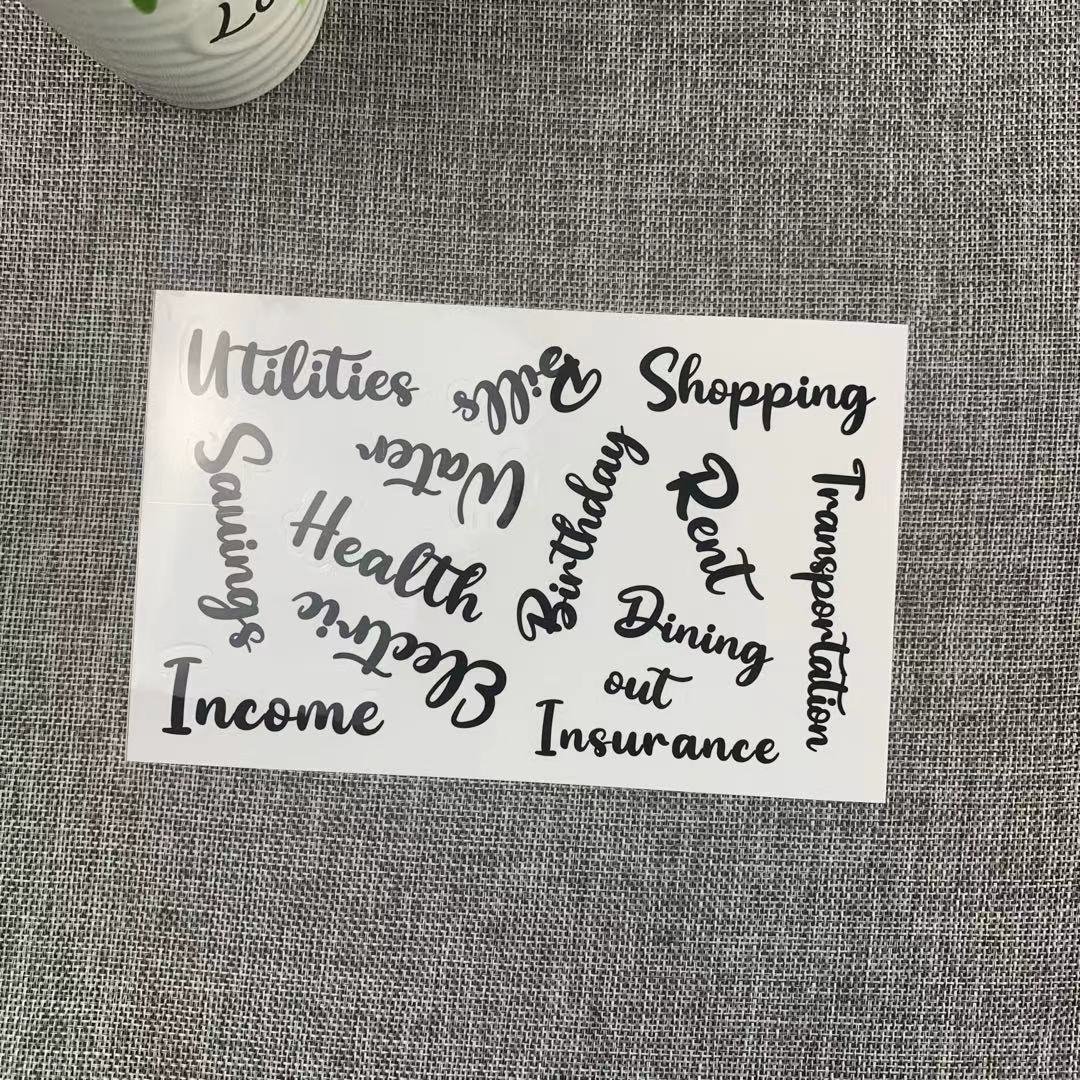 Utilities
Bills
Shopping
Savings
Water
Birthday
Rent
Transportation
Health
Electric
Dining
out
Income
Insurance